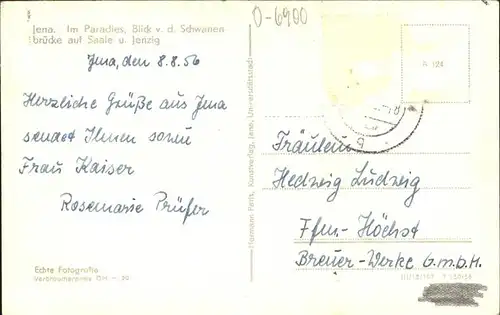 O-6900
Jena. Im Paradies, Blick v. d. Schwanen-
brücke auf Saale u. Jenzig
Jena, den 8.8.56
Herzliche Grüße aus Jena
sendet Ihnen sowie
Frau Kaiser
Rosemarie Prüfer
Echte Fotografie
Hermann Perth, Kunstverlag, Jena, Universitätsstadt
Fräulein
Hedwig Ludwig
Ffm.-Höchst
Breuer-Werke G.m.b.H.